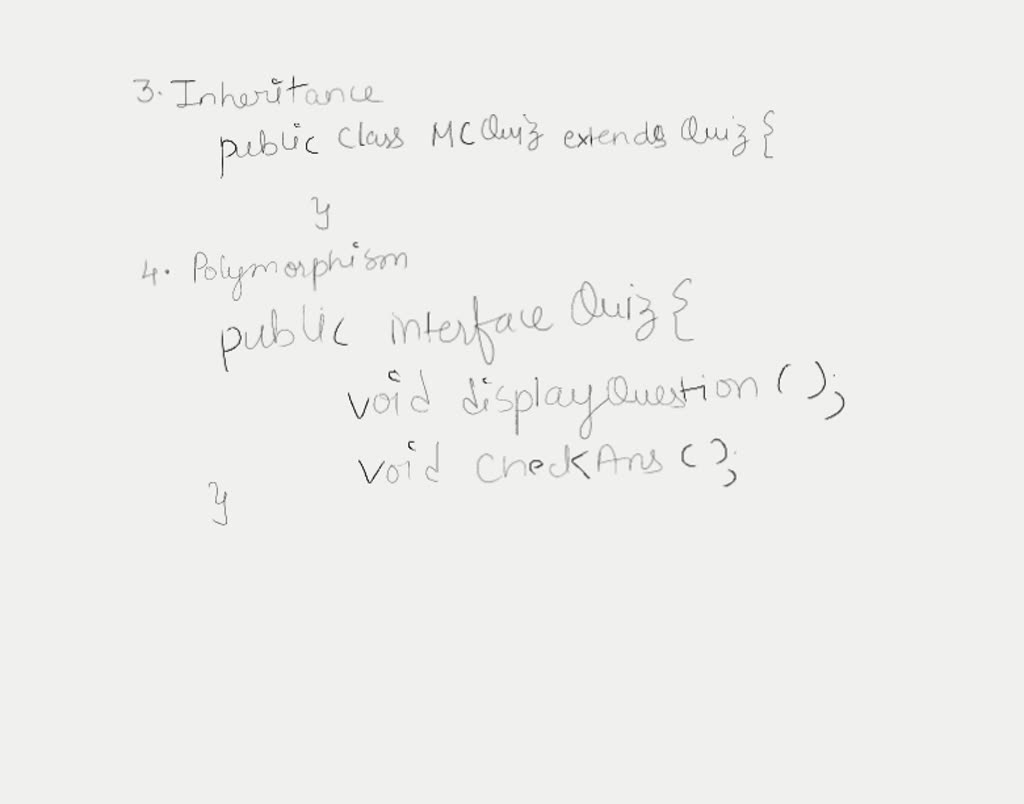 3. Inheritance
public class MCQuiz extends Quiz {
}
4. Polymorphism
public interface Quiz {
void displayQuestion ();
void checkAns ();
}